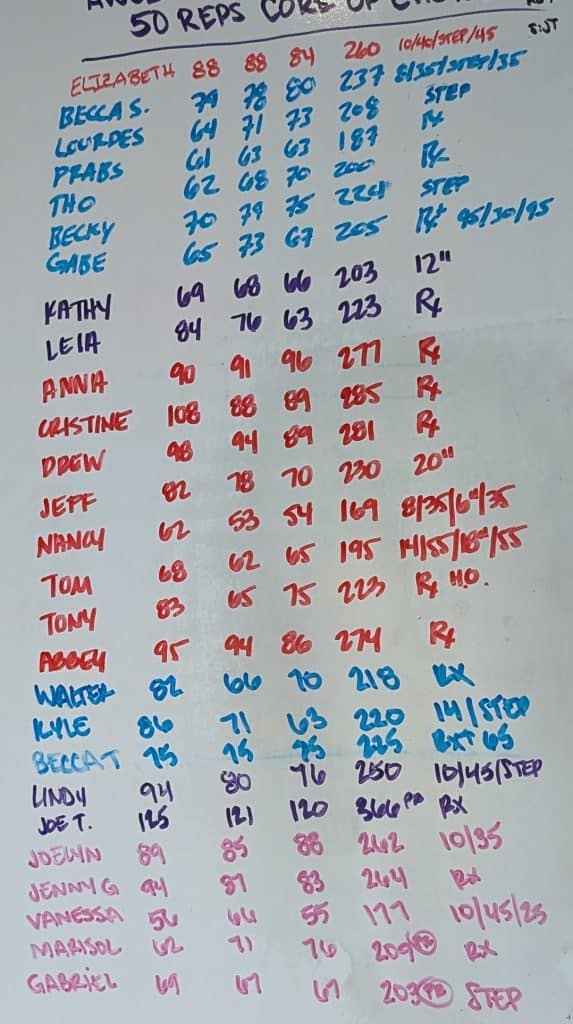 50 REPS CORE OF
ELIZABETH 88 88 84 260 10/40/STEP/45
BECCA S. 79 78 80 237 8/35/STEP/35
LOURDES 64 71 73 208 STEP
PRABS 61 63 63 187 Rx
THO 62 68 70 200 Rx
BECKY 70 79 75 224 STEP
GABE 65 73 67 205 Rx+ 95/30/95
KATHY 69 68 66 203 12"
LEIA 84 76 63 223 Rx
ANNA 90 91 96 277 Rx
CRISTINE 108 88 89 285 Rx
DREW 98 94 89 281 Rx
JEFF 82 78 70 230 20"
NANCY 62 53 54 169 8/35/6"/35
TOM 68 62 65 195 14/55/18"/55
TONY 83 65 75 223 Rx H.O.
ABBEY 95 94 86 274 Rx
WALTER 82 66 70 218 RX
KYLE 86 71 63 220 14/STEP
BECCA T 75 75 75 225 RX+ 65
LINDY 94 80 76 250 10/45/STEP
JOE T. 125 121 120 366 PR RX
JOELYN 89 85 88 262 10/35
JENNY G 94 87 83 264 RX
VANESSA 56 66 55 177 10/45/25
MARISOL 62 71 76 209 PR RX
GABRIEL 69 67 67 203 PR STEP